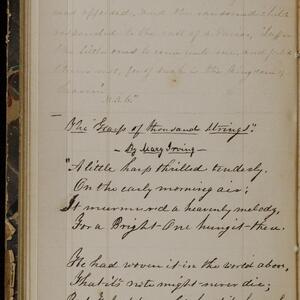 was afforded, and the ransomed child
responded to the call of a Savior, "Suffer
the little ones to come unto me, and forbid
them not, for of such is the kingdom of
heaven"
The "Harp of thousand strings".
— By Mary Irving —
"A little harp thrilled tenderly.
On the early morning air;
It murmured a heavenly melody,
For a Bright-One hung it there.
He had woven it in the world above,
That its note might never die;